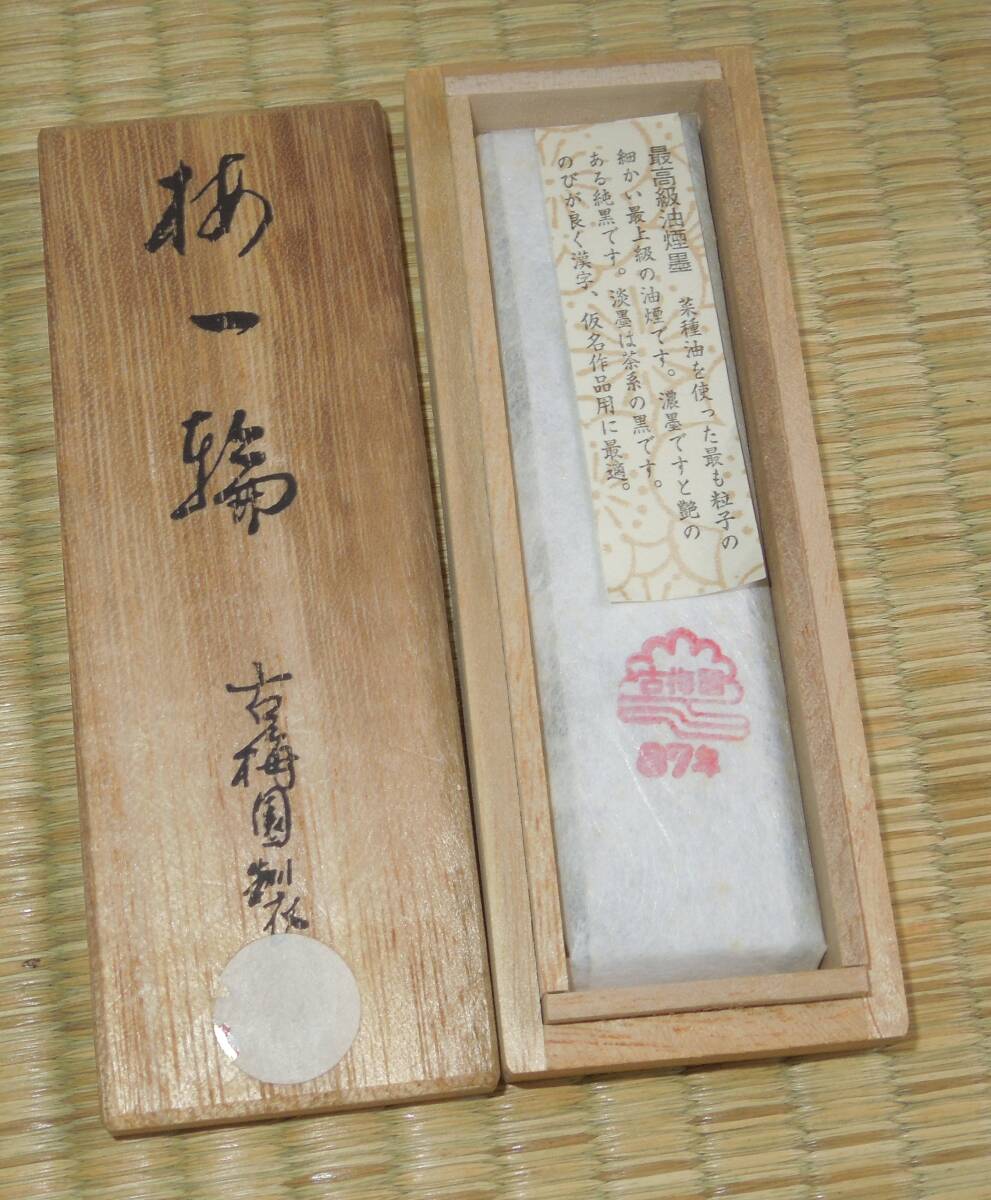 梅一輪
古梅園製
最高級油煙墨 菜種油を使った最も粒子の
細かい最上級の油煙です。濃墨ですと艶の
ある純黒です。淡墨は茶系の黒です。
のびが良く漢字、仮名作品用に最適。
古梅園
87年